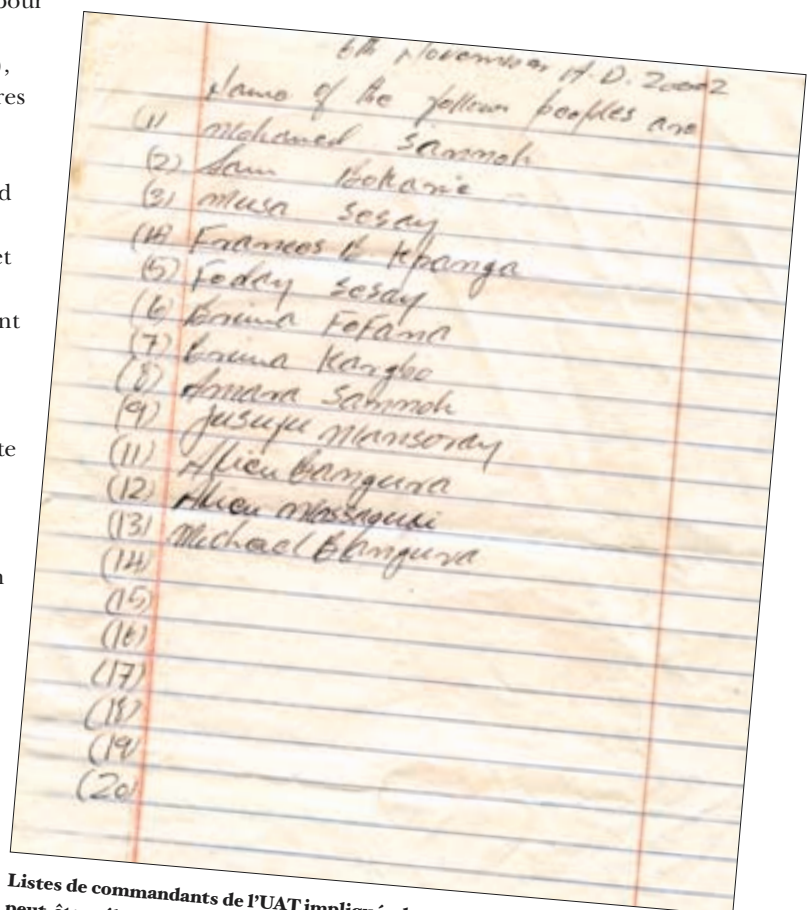 pour
),
res
d
et
nt
te
n
6th November A.D. 2002
Name of the follow peoples are
(1) Mohamed Sannoh
(2) Sam Bokarie
(3) Musa Sesay
(4) Frances Kpanga
(5) Foday Sesay
(6) Brima FoFana
(7) Brima Kargbo
(8) Amara Sannoh
(9) Jusufu Mansaray
(11) Alieu Bangura
(12) Alieu Massaquoi
(13) Michael Bangura
(14)
(15)
(16)
(17)
(18)
(19)
(20)
Listes de commandants de l'UAT
peut-être